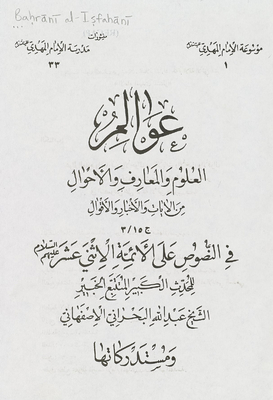 Baḥrānī al-Iṣfahānī
موسوعة الإمام المهدي
منشورات
مدرسة الإمام المهدي
١
٣٣
عوالم
العلوم والمعارف والأحوال
من الآيات والأخبار والأقوال
ج ٣/١٥
في النصوص على الأئمة الإثني عشر عليهم السلام
للمحدث الكبير المتتبع الخبير
الشيخ عبد الله البحراني الإصفهاني
ومستدركاتها